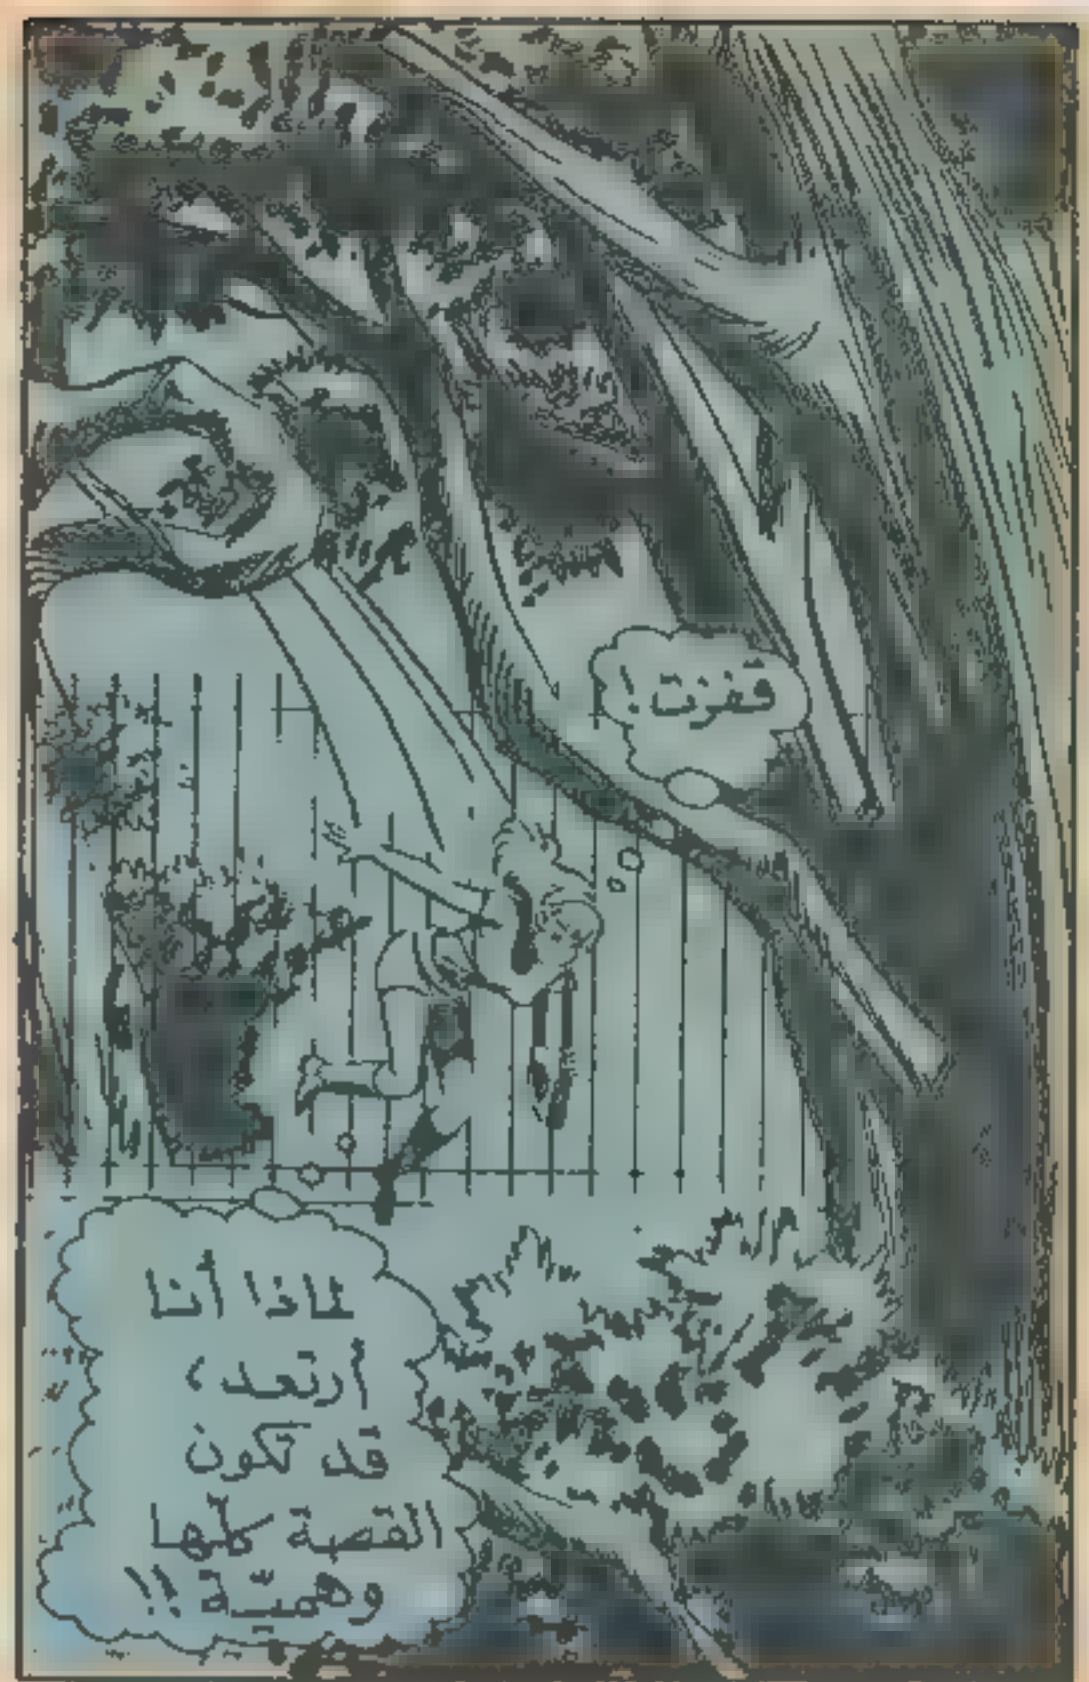 قفزت!
لماذا أنا
أرتعد،
قد تكون
القصة كلها
وهميّة !!